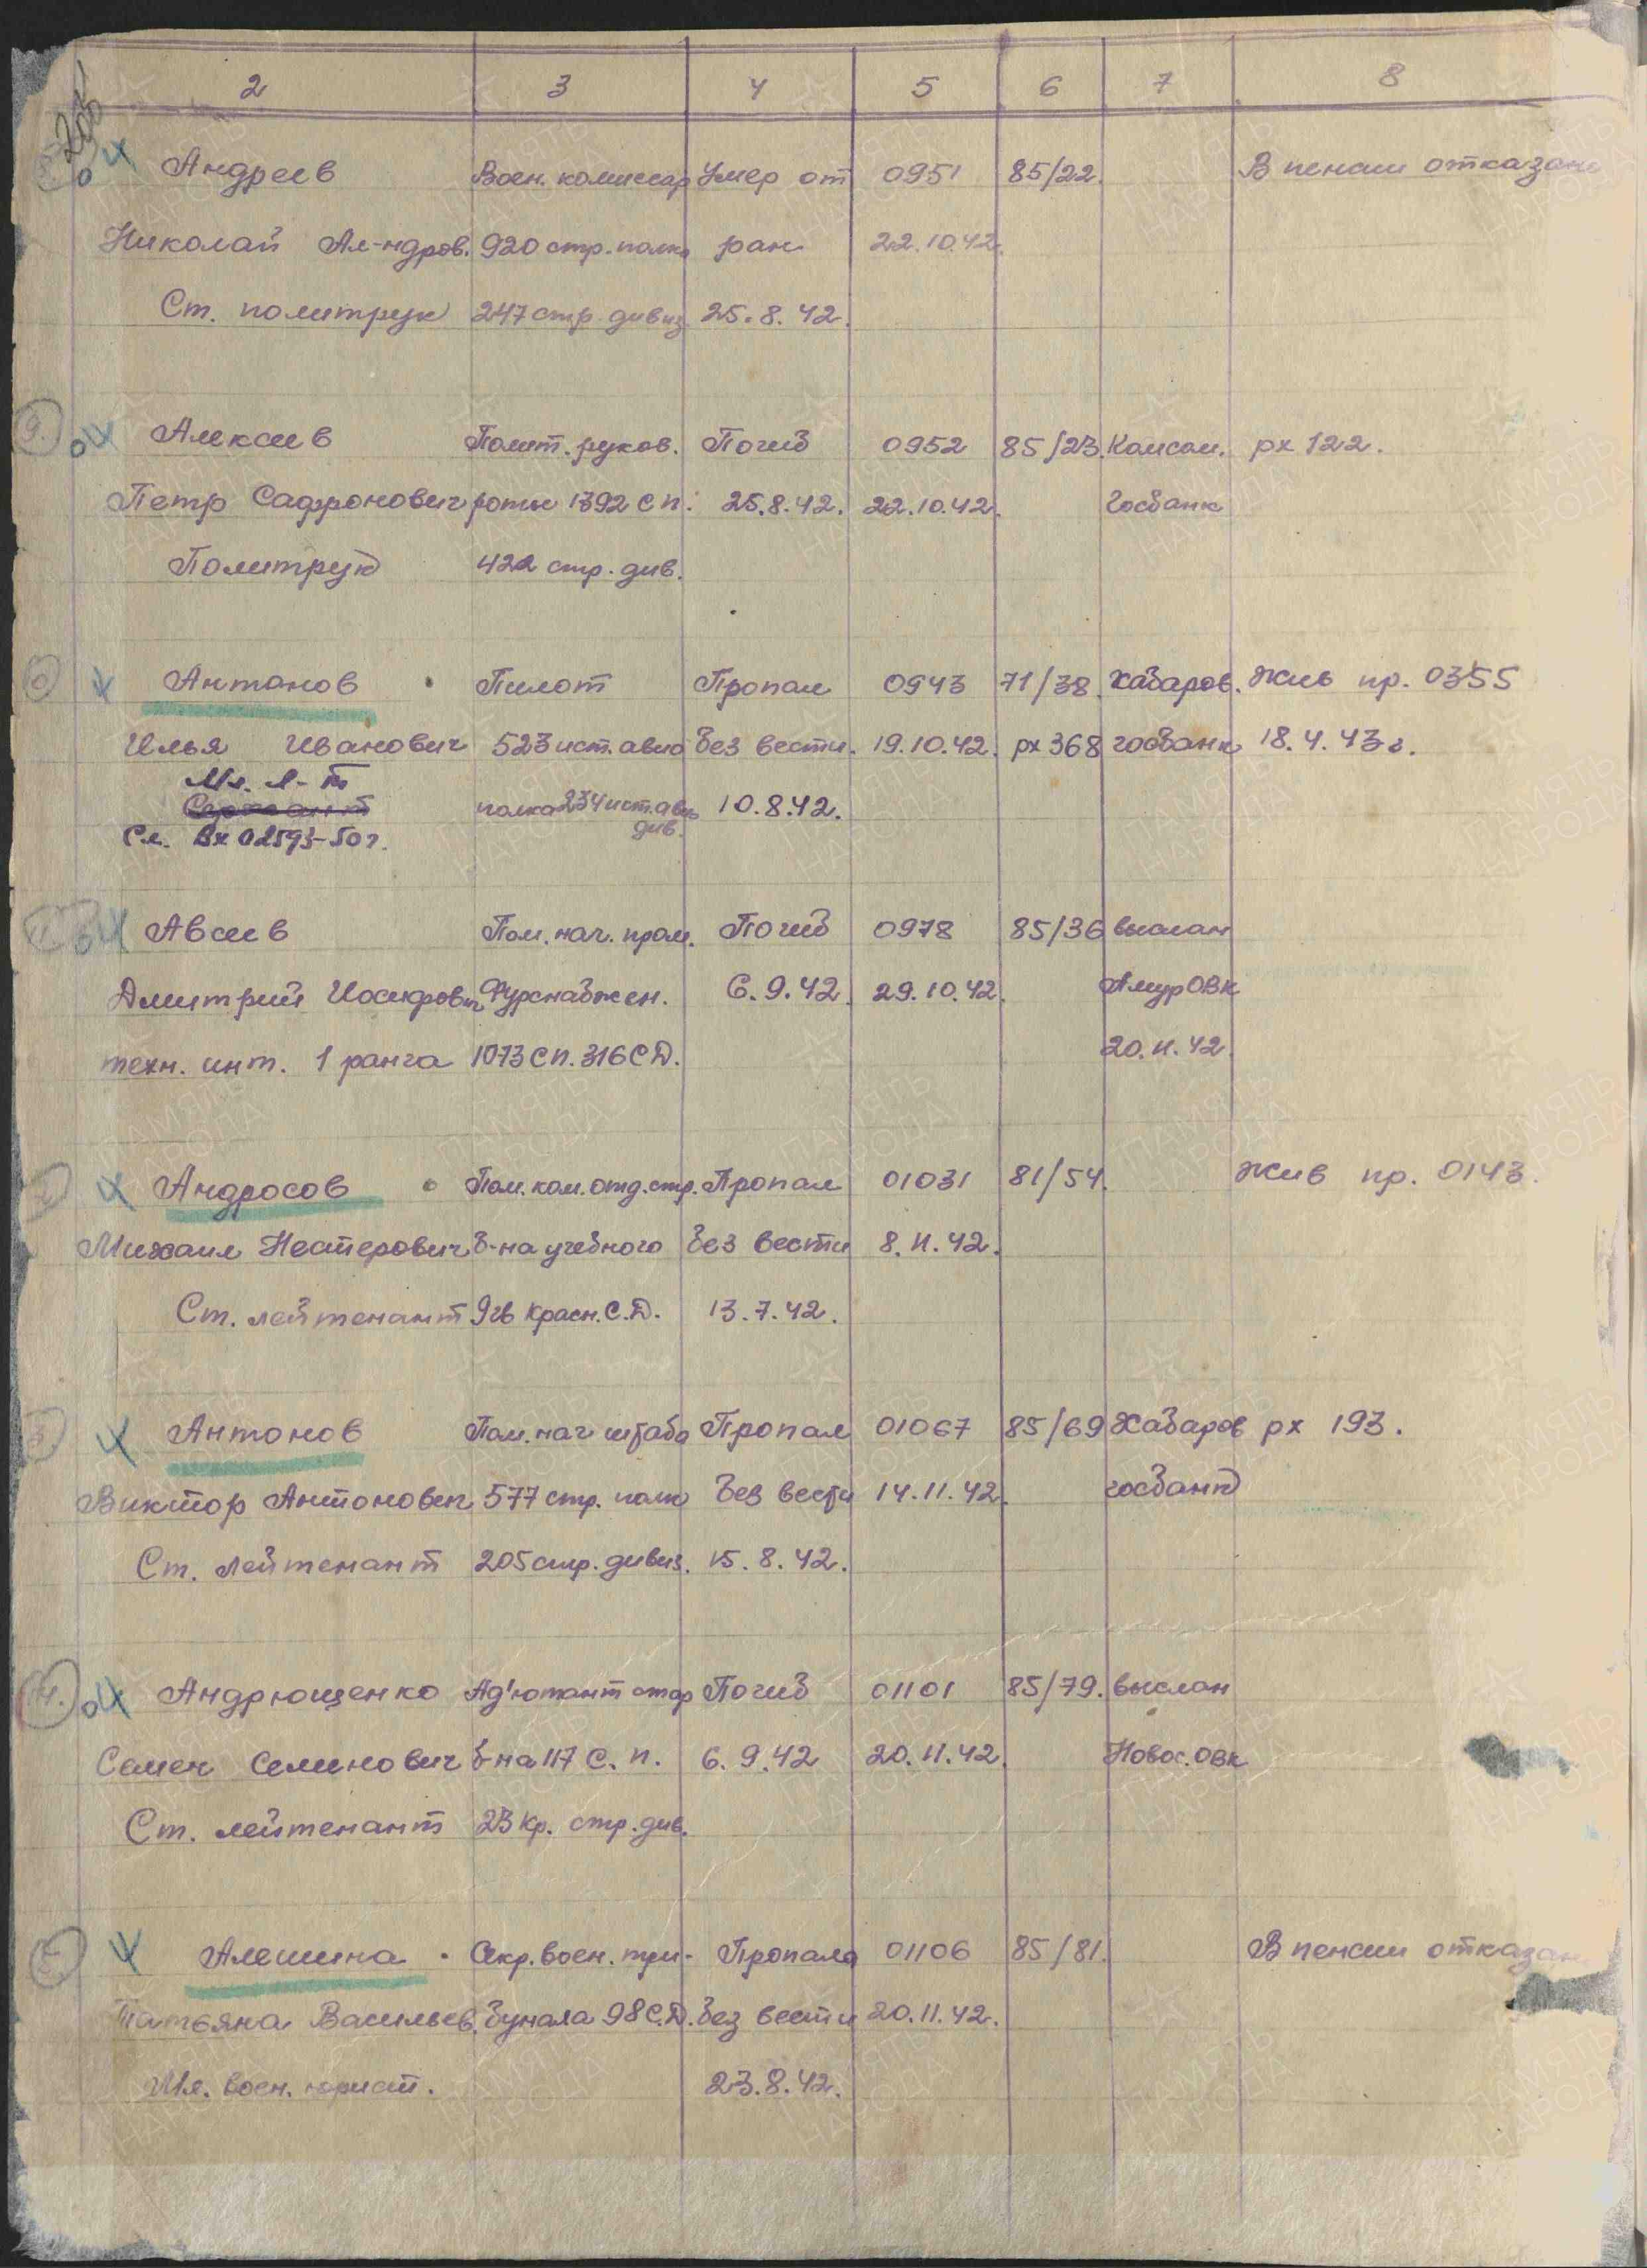 2 3 4 5 6 7 8
Андреев Воен. комиссар Умер от 0951 85/22. В пенсии отказано
Николай Ал-ндров. 920 стр. полка ран 22.10.42.
Ст. политрук 247 стр. дивиз. 25.8.42.
9. Алексеев Полит. руков. Погиб 0952 85/23. Комсом. рх 122.
Петр Сафронович роты 1392 СП. 25.8.42. 22.10.42. Госбанк
Политрук 422 стр. див.
Антонов Пилот Пропал 0943 71/38. Хабаров. Жив пр. 0355
Илья Иванович 523 ист. авиа без вести. 19.10.42. рх 368 госбанк 18.4.43 г.
Мл. л-т
Сержант полка 234 ист. авиа 10.8.42.
див.
См. Вх 02593-50 г.
11. Авсеев Пом. нач. прод. Погиб 0978 85/36 выслан
Дмитрий Иосифович Фурснабжен. 6.9.42. 29.10.42. Амур ОВК
техн. инт. 1 ранга 1073 СП. 316 СД. 20.11.42.
Андросов Пом. ком. отд. стр. Пропал 01031 81/54. Жив пр. 0143.
Михаил Нестерович б-на учебного без вести 8.11.42.
Ст. лейтенант 9 гв Красн. С.Д. 13.7.42.
Антонов Пом. нач штаба Пропал 01067 85/69 Хабаров рх 193.
Виктор Антонович 577 стр. полк без вести 14.11.42. госбанк
Ст. лейтенант 205 стр. дивиз. 15.8.42.
14. Андрющенко Ад'ютант стар Погиб 01101 85/79. выслан
Семен Семенович б-на 117 С.П. 6.9.42 20.11.42. Новос. ОВК
Ст. лейтенант 23 Кр. стр. див.
Алешина Секр. воен. три- Пропала 01106 85/81. В пенсии отказан
Татьяна Васильев. бунала 98 С.Д. без вести 20.11.42.
Мл. воен. юрист. 23.8.42.